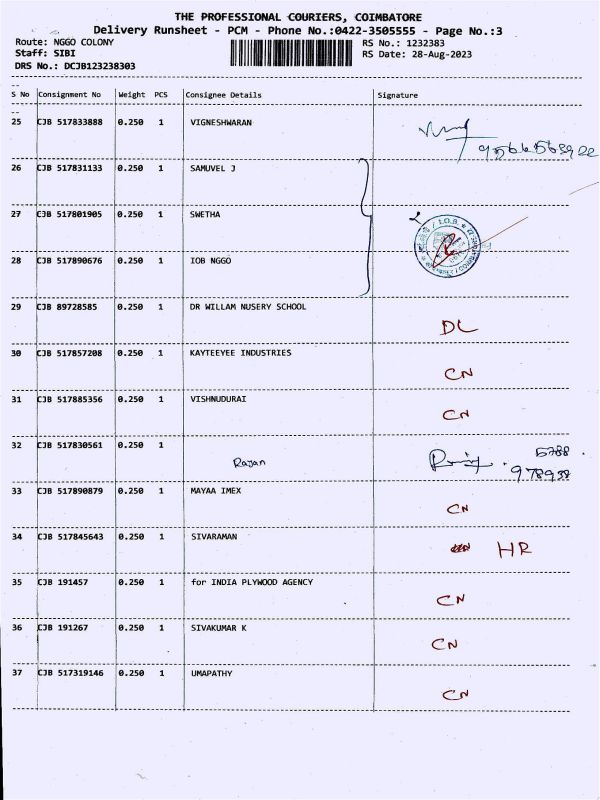 THE PROFESSIONAL COURIERS, COIMBATORE
Delivery Runsheet - PCM - Phone No.:0422-3505555 - Page No.:3
Route: NGGO COLONY RS No.: 1232383
Staff: SIBI RS Date: 28-Aug-2023
DRS No.: DCJB123238303
S No Consignment No Weight PCS Consignee Details Signature
25 CJB 517833888 0.250 1 VIGNESHWARAN
26 CJB 517831133 0.250 1 SAMUVEL J
27 CJB 517801905 0.250 1 SWETHA
I.O.B.
28 CJB 517890676 0.250 1 IOB NGGO
29 CJB 89728585 0.250 1 DR WILLAM NUSERY SCHOOL
DL
30 CJB 517857208 0.250 1 KAYTEEYEE INDUSTRIES
CN
31 CJB 517885356 0.250 1 VISHNUDURAI
CN
32 CJB 517830561 0.250 1
Rajan
33 CJB 517890879 0.250 1 MAYAA IMEX
CN
34 CJB 517845643 0.250 1 SIVARAMAN
HR
35 CJB 191457 0.250 1 for INDIA PLYWOOD AGENCY
CN
36 CJB 191267 0.250 1 SIVAKUMAR K
CN
37 CJB 517319146 0.250 1 UMAPATHY
CN